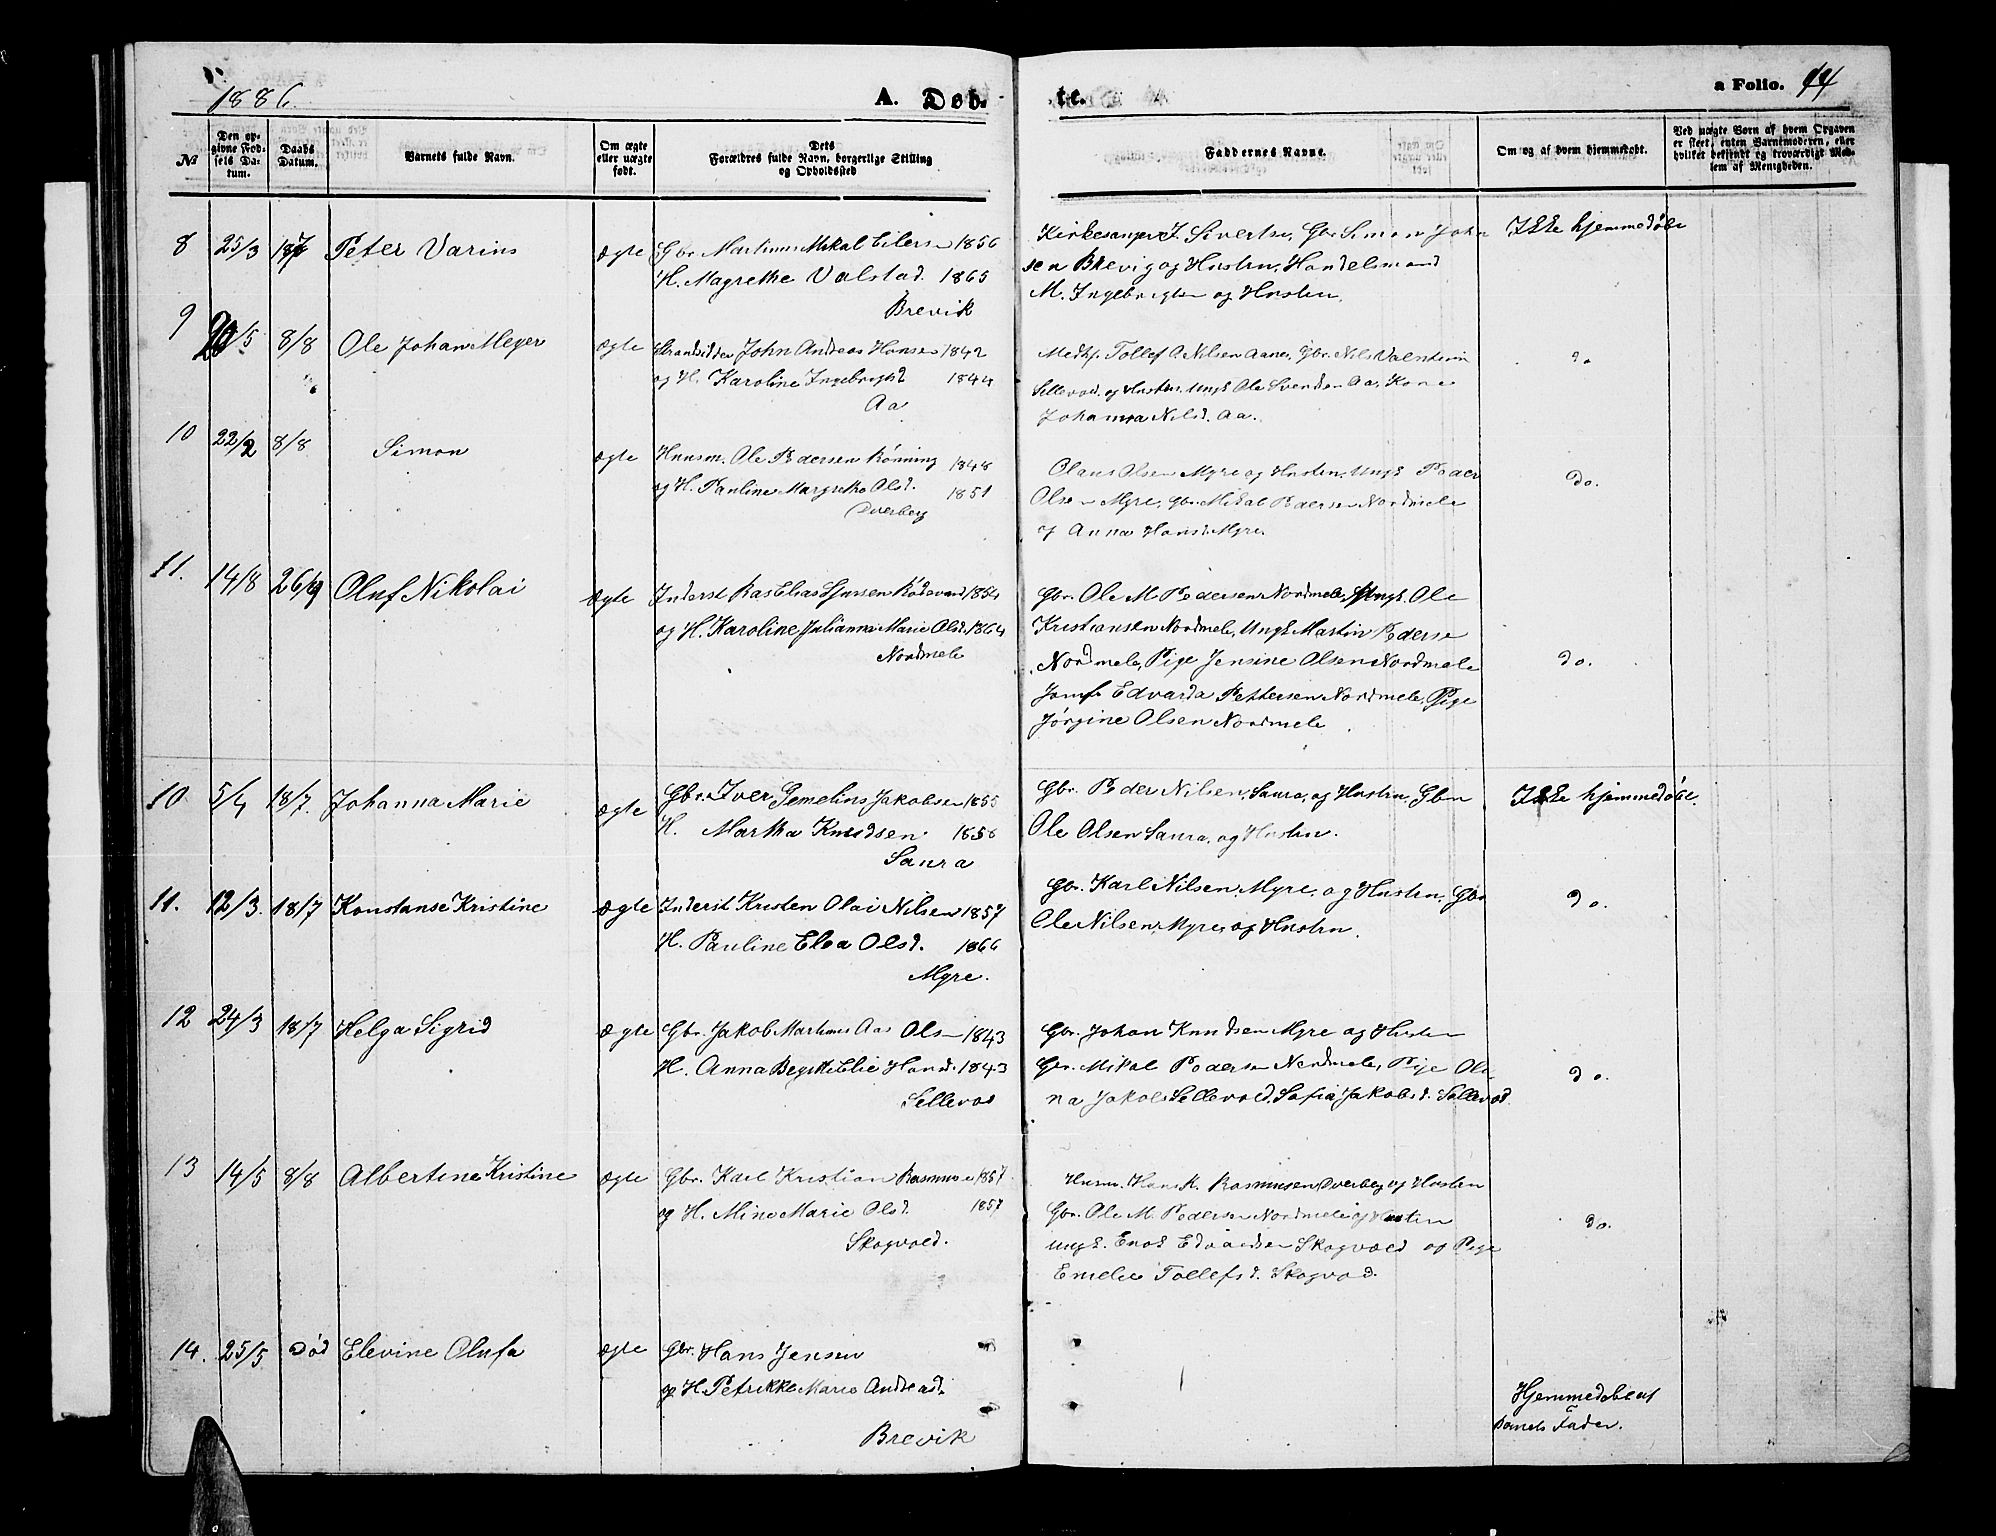 1886.
A. Døb-
te.
a Folio. 14
№
Den op-
givne Fød-
sels Da-
tum.
Daabs
Datum.
Barnets fulde Navn.
Om ægte
eller uægte
født.
Dets
Forældres fulde Navn, borgerlige Stilling
og Opholdssted
Faddernes Navne.
Om og af hvem hjemmedøbt.
Ved uægte Børn af hvem Opgaven
er skeet, enten Barnemoderen, eller
hvilket bekjendt og troværdigt Med-
lem af Menigheden.
8 25/3 18/7 Peter Varins ægte Gbr. Martinus Mikal Eilersen 1856
H. Magrethe Valstad. 1865
Brevik
Kirkesanger J. Sivertsen, Gbr. Simon John
sen Brevig og Hustru, Handelsmand
M. Ingebrigtsen og Hustru.
Ikke hjemmedøbt
9 20/5 8/8 Ole Johan Meyer ægte Strandsidder John Andreas Hansen 1842
og H. Karoline Ingebrigtsd 1844
Aa
Medhj. Tollef A Nilsen Aanes, Gbr. Nils Valentin
Sellevold og Hustru, Ungk Ole Svendsen Aa, Kone
Johanna Nilsd. Aa.
do
10 22/2 8/8 Simon ægte Huusm. Ole Pedersen Rønning 1848
og H. Pauline Margrethe Olsd. 1851
Dverberg
Claus Olsen Myre og Hustru, Ungk Peder
Olsen Myre, Gbr. Mikal Pedersen Nordmele
og Anna Hansd. Myre.
do.
11. 14/8 26/9 Oluf Nikolai ægte Inderst Ras Elias Sjursen Rødevand 1854
og H. Karoline Julianna Marie Olsd. 1864
Nordmele
Gbr. Ole M. Pedersen Nordmele, Ungk. Ole
Kristiansen Nordmele, Ungk Martin Pederse
Nordmele, Pige Jensine Olsen Nordmele
Jomf. Edvarda Pettersen Nordmele, Pige
Jørgine Olsen Nordmele
do.
10 5/4 18/7. Johanna Marie ægte Gbr. Iver Gemelins Jakobsen 1855
H. Martha Knudsen 1856
Saura
Gbr. Peder Nilsen, Saura, og Hustru, Gbr
Ole Olsen Saura, og Hustru.
Ikke hjemmedøbt.
11. 12/3. 18/7 Konstanse Kristine ægte Inderst Kristen Olai Nilsen 1857
H. Pauline Elea Olsd. 1866
Myre.
Gbr. Karl Nilsen, Myre, og Hustru, Gbr
Ole Nilsen, Myre, og Hustru.
do.
12 24/3 18/7 Helga Sigrid ægte Gbr. Jakob Martinus Aas Olsen 1843
H. Anna Begitte Elie Hansd. 1843
Sellevod
Gbr. Johan Knudsen Myre og Hustru
Gbr. Mikal Pedersen Nordmele, Pige Oli
na Jakobs Sellevold, Sofia Jakobsd. Sellevod.
do.
13 14/5 8/8 Albertine Kristine ægte Gbr. Karl Kristian Rasmusen 1857
og H. Mine Marie Olsd. 1857
Skogvold.
Husm. Hans K. Rasmusen, Dverberg og Hustru
Gbr. Ole M. Pedersen Nordmele og Hustru
Ungk. Enok Edvardsen Skogvold og Pige
Emelie Tollefsd. Skogvod.
do.
14. 25/5 Død Elevine Olufa ægte Gbr. Hans Jensen
og H. Petrikke Marie Andreasd.
Brevik
Hjemmedøbt af
Barnets Fader.